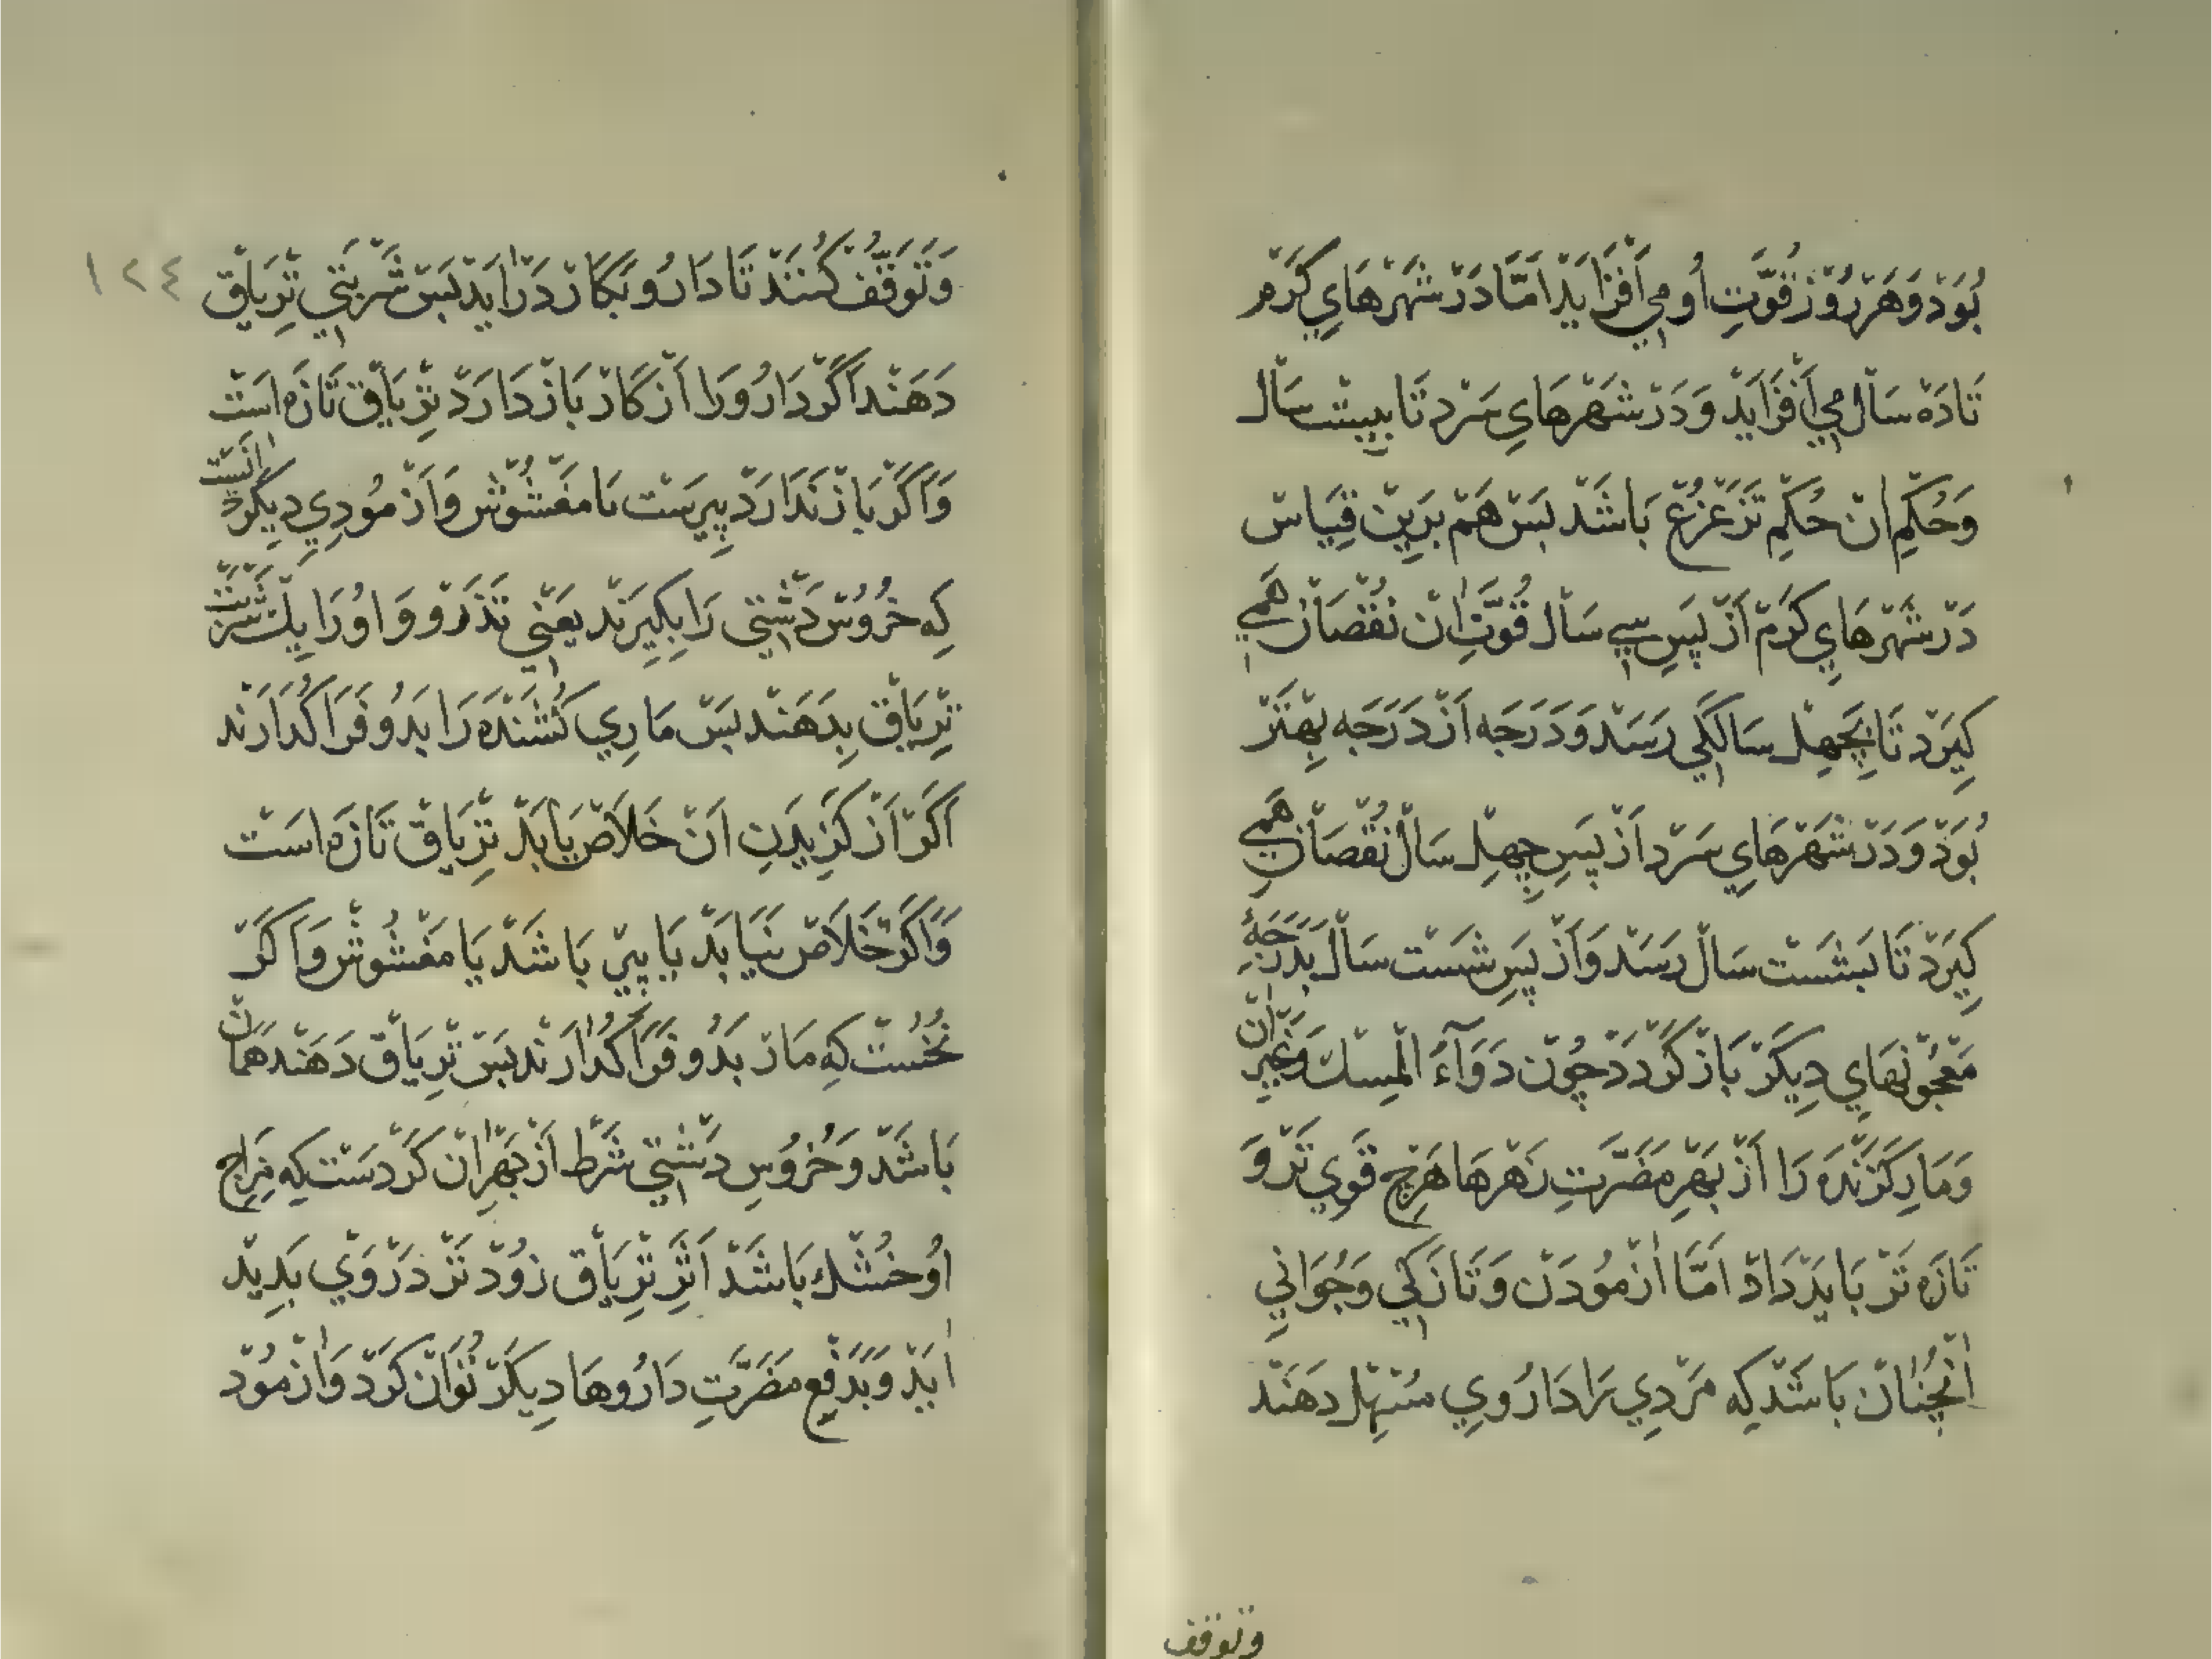 بُوَدْ وَهَرْ رُوْزْ قُوَّتِ اُو مِي اَفْزَايَدْ اَمَّا دَرْ شَهْرْهَايِ كَرْم
تَا دَهْ سَالْ مِي اَفْزَايَدْ وَ دَرْ شَهْرْهَايِ سَرْد تَا بيِيسْت سَالْ
وَحُكْمِ انْ حُكْمِ تَزَعْزُعْ بَاشَدْ بَسْ هَمْ بَرِينْ قِيَاسْ
دَرْ شَهْرْهَايِ كَرْم اَزْ پَسِ سِي سَالْ قُوَّتِ انْ نُقْصَانْ هَمِي
كِيرَدْ تَا بِچِهِلْ سَالَكَي رَسَدْ وَ دَرَجَه اَزْ دَرَجَه بِهْتَرْ
بُوَدْ وَ دَرْ شَهْرْهَايِ سَرْد اَزْ پَسِ چِهِلْ سَالْ نُقْصَانْ هَمِي
كِيرَدْ تَا بَشَسْت سَالْ رَسَدْ وَ اَزْ پَسِ شَسْت سَالْ بَدَرَجَهٔ
مَعْجُوْنْهَايِ دِيكَرْ بَازْ كَرْدَدْ چُونْ دَوَآءُ الْمِسْك وَغَيْرِ انْ
وَ مَارِ كَزَنْدَه رَا اَزْ بَهْرِ مَضَرَّتِ زَهْرْهَا هَرْچِ قَوِي تَرْ وَ
تَازَه تَرْ بَايَدْ دَادْ اَمَّا ازْمُودَنْ وَ تَازَكَي وَ جُوَانِي
انْچُنَانْ بَاشَدْ كِه مَرْدِي رَا دَارُويِ مُسْهِلْ دَهَنْد
وتوقف
وَ تَوَقُّفْ كُنَنْد تَا دَارُو بَكَارْ دَرْ ايَدْ بَسْ شَرْبَتِي تِرْيَاقْ
١٢٤
دَهَنْد اَكَرْ دَارُو رَا اَزْ كَارْ بَازْ دَارَدْ تِرْيَاقْ تَازَه اسَتْ
وَ اَكَرْ بَازْ نَدَارَدْ پِيرَسْت يَا مَغْشُوْشْ وَ ازْمُودِي دِيكَرْ انَسْت
كِه خُرُوْس دَشْتِي رَا بِكِيرَنْد يَعْنِي تَذَرْو وَ اوُ رَا يِكْ شَرْبَتْ
تِرْيَاقْ بِدَهَنْد بَسْ مَارِي كُشَنْدَه رَا بَدُو فَرَا كُذَارَنْد
اَكَرْ اَزْ كَزِيدَنِ انْ خَلَاصْ يَابَدْ تِرْيَاقْ تَازَه اسَتْ
وَ اَكَرْ خَلَاصْ نَيَابَدْ يَا پِيرْ بَاشَدْ يَا مَغْشُوشْ وَ اَكَرْ
نَخُسْتْ كِه مَارْ بَدُو فَرَا كُذَارَنْد بَسْ تِرْيَاقْ دَهَنْد هَمَانْ
بَاشَدْ وَ خُرُوسِ دَشْتِي شَرْط اَزْ بَهْرِ انْ كَرْدسَتْ كِه مِزَاجِ
اُو خُشْك بَاشَدْ اَثَرِ تِرْيَاقْ زُودْ تَرْ دَرْ وَيْ بَدِيدْ
ايَدْ وَ بَدَفْعِ مَضَرَّتِ دَارُوهَا دِيكَرْ تُوَانْ كَرْد وَ ازْمُودْ